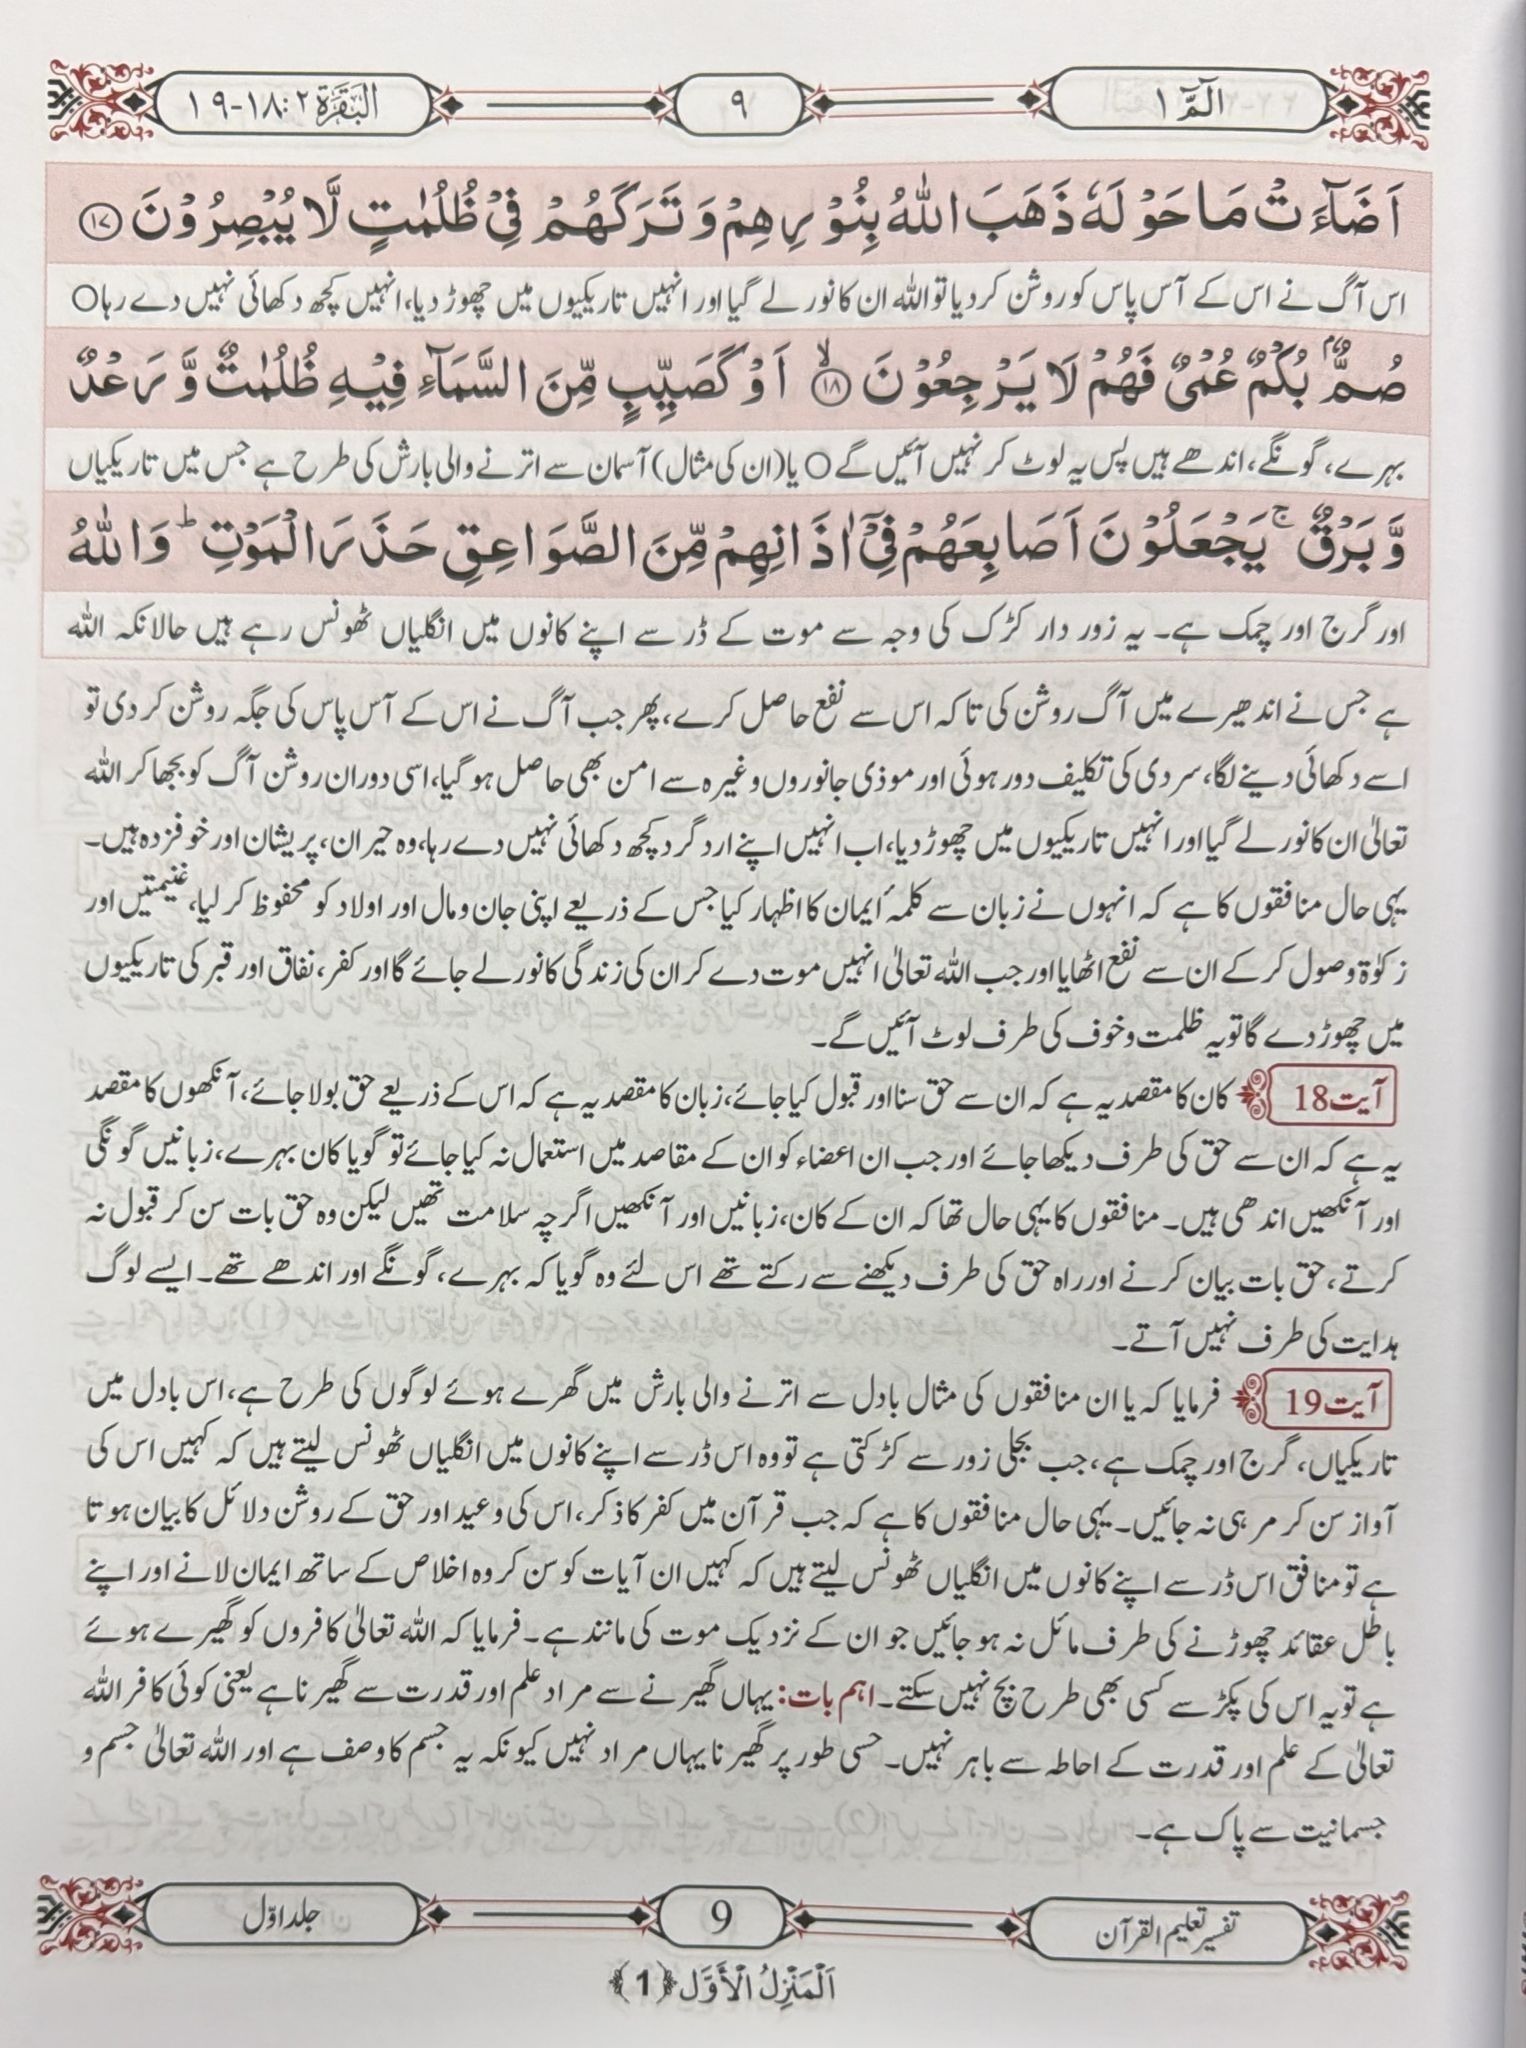 الٓمّٓ ١
٩
البقرة ٢: ١٨-١٩
اَضَآءَتْ مَا حَوْلَهٗ ذَهَبَ اللّٰهُ بِنُوْرِهِمْ وَ تَرَكَهُمْ فِیْ ظُلُمٰتٍ لَّا یُبْصِرُوْنَ ﴿۱۷﴾
اس آگ نے اس کے آس پاس کو روشن کردیا تو اللہ ان کا نور لے گیا اور انہیں تاریکیوں میں چھوڑ دیا، انہیں کچھ دکھائی نہیں دے رہا○
صُمٌّۢ بُكْمٌ عُمْیٌ فَهُمْ لَا یَرْجِعُوْنَ ﴿ۙ۱۸﴾ اَوْ كَصَیِّبٍ مِّنَ السَّمَآءِ فِیْهِ ظُلُمٰتٌ وَّ رَعْدٌ
بہرے، گونگے، اندھے ہیں پس یہ لوٹ کر نہیں آئیں گے○ یا (ان کی مثال) آسمان سے اترنے والی بارش کی طرح ہے جس میں تاریکیاں
وَّ بَرْقٌ ۚ یَجْعَلُوْنَ اَصَابِعَهُمْ فِیْۤ اٰذَانِهِمْ مِّنَ الصَّوَاعِقِ حَذَرَ الْمَوْتِ ؕ وَ اللّٰهُ
اور گرج اور چمک ہے۔ یہ زور دار کڑک کی وجہ سے موت کے ڈر سے اپنے کانوں میں انگلیاں ٹھونس رہے ہیں حالانکہ اللہ
ہے جس نے اندھیرے میں آگ روشن کی تاکہ اس سے نفع حاصل کرے، پھر جب آگ نے اس کے آس پاس کی جگہ روشن کر دی تو
اسے دکھائی دینے لگا، سردی کی تکلیف دور ہوئی اور موذی جانوروں وغیرہ سے امن بھی حاصل ہو گیا، اسی دوران روشن آگ کو بجھا کر اللہ
تعالیٰ ان کا نور لے گیا اور انہیں تاریکیوں میں چھوڑ دیا، اب انہیں اپنے اردگرد کچھ دکھائی نہیں دے رہا، وہ حیران، پریشان اور خوفزدہ ہیں۔
یہی حال منافقوں کا ہے کہ انہوں نے زبان سے کلمۂ ایمان کا اظہار کیا جس کے ذریعے اپنی جان و مال اور اولاد کو محفوظ کر لیا، غنیمتیں اور
زکوٰۃ وصول کر کے ان سے نفع اٹھایا اور جب اللہ تعالیٰ انہیں موت دے کر ان کی زندگی کا نور لے جائے گا اور کفر، نفاق اور قبر کی تاریکیوں
میں چھوڑ دے گا تو یہ ظلمت و خوف کی طرف لوٹ آئیں گے۔
آیت 18 کان کا مقصد یہ ہے کہ ان سے حق سنا اور قبول کیا جائے، زبان کا مقصد یہ ہے کہ اس کے ذریعے حق بولا جائے، آنکھوں کا مقصد
یہ ہے کہ ان سے حق کی طرف دیکھا جائے اور جب ان اعضاء کو ان کے مقاصد میں استعمال نہ کیا جائے تو گویا کان بہرے، زبانیں گونگی
اور آنکھیں اندھی ہیں۔ منافقوں کا یہی حال تھا کہ ان کے کان، زبانیں اور آنکھیں اگرچہ سلامت تھیں لیکن وہ حق بات سن کر قبول نہ
کرتے، حق بات بیان کرنے اور راہ حق کی طرف دیکھنے سے رکتے تھے اس لئے وہ گویا کہ بہرے، گونگے اور اندھے تھے۔ ایسے لوگ
ہدایت کی طرف نہیں آتے۔
آیت 19 فرمایا کہ یا ان منافقوں کی مثال بادل سے اترنے والی بارش میں گھرے ہوئے لوگوں کی طرح ہے، اس بادل میں
تاریکیاں، گرج اور چمک ہے، جب بجلی زور سے کڑکتی ہے تو وہ اس ڈر سے اپنے کانوں میں انگلیاں ٹھونس لیتے ہیں کہ کہیں اس کی
آواز سن کر مر ہی نہ جائیں۔ یہی حال منافقوں کا ہے کہ جب قرآن میں کفر کا ذکر، اس کی وعید اور حق کے روشن دلائل کا بیان ہوتا
ہے تو منافق اس ڈر سے اپنے کانوں میں انگلیاں ٹھونس لیتے ہیں کہ کہیں ان آیات کو سن کر وہ اخلاص کے ساتھ ایمان لانے اور اپنے
باطل عقائد چھوڑنے کی طرف مائل نہ ہو جائیں جو ان کے نزدیک موت کی مانند ہے۔ فرمایا کہ اللہ تعالیٰ کافروں کو گھیرے ہوئے
ہے تو یہ اس کی پکڑ سے کسی بھی طرح بچ نہیں سکتے۔ اہم بات: یہاں گھیرنے سے مراد علم اور قدرت سے گھیرنا ہے یعنی کوئی کافر اللہ
تعالیٰ کے علم اور قدرت کے احاطہ سے باہر نہیں۔ حسی طور پر گھیرنا یہاں مراد نہیں کیونکہ یہ جسم کا وصف ہے اور اللہ تعالیٰ جسم و
جسمانیت سے پاک ہے۔
تفسیر تعلیم القرآن
9
جلد اوّل
اَلْمَنْزِلُ الْاَوَّل ﴿1﴾